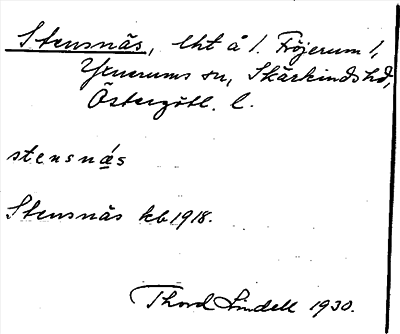 Stensnäs, lht å 1. Fröjerum 1,
Yxnerums sn, Skärkinds hd,
Östergötl. l.
stensnä́s
Stensnäs kb 1918.
Thord Lindell 1930.